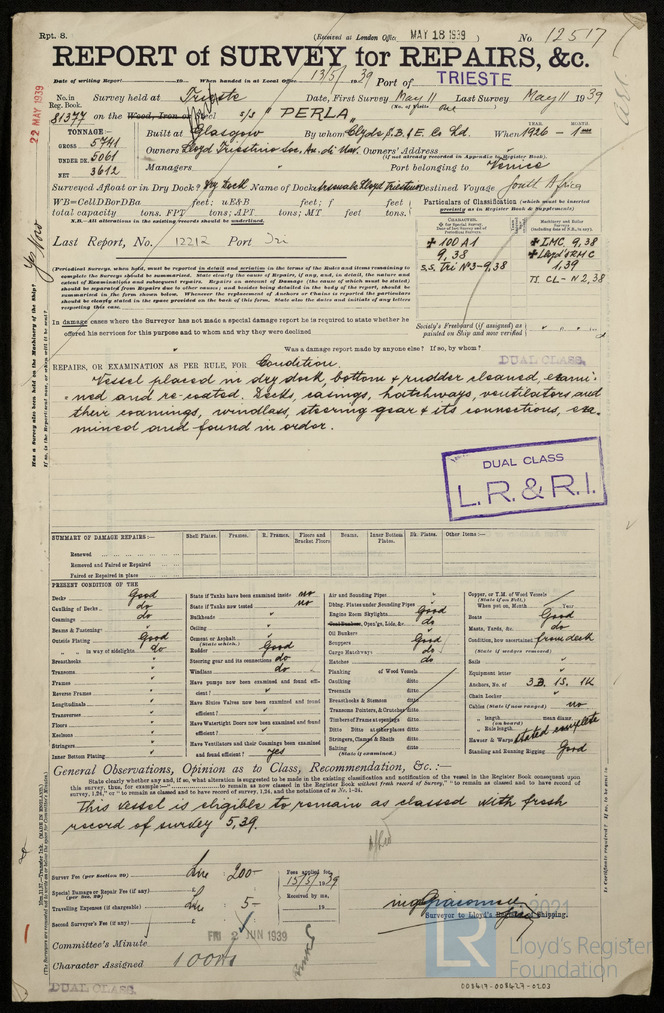 Rpt. 8.
(Received at London Office MAY 18 1939 )
No. 12517
REPORT of SURVEY for REPAIRS, &c.
Date of writing Report 19 When handed in at Local Office 13/5/ 1939 Port of TRIESTE
No. in Reg. Book. Survey held at Trieste Date, First Survey May 11 Last Survey May 11 1939
(No. of Visits one )
81377 on the Wood, Iron or Steel s/s "PERLA"
22 MAY 1939
TONNAGE:—
GROSS 5741
UNDER DK. 5061
NET 3612
Built at Glasgow By whom Clyde S.B. & E. Co Ld. When 1926 - 1
YEAR. MONTH.
Owners Lloyd Triestino Soc. An. di Nav. Owners' Address
(if not already recorded in Appendix to Register Book).
Managers Port belonging to Venice
Surveyed Afloat or in Dry Dock? Dry Dock Name of Dock Arsenale Lloyd Triestino Destined Voyage South Africa
WB=CellDBorDBa feet; uE&B feet; f feet
total capacity tons. FPT tons; APT tons; MT feet tons.
N.B.—All alterations in the existing records should be underlined.
Particulars of Classification (which must be inserted precisely as in Register Book & Supplements)
Last Report, No. 12212 Port Tri
CHARACTER.
for Special Survey Date of last Survey and of Periodical Surveys.
Machinery and Boiler Surveys (including date of N.B., if any).
+ 100 A1
9,38
S.S. Tri No3-9,38
+ LMC 9,38
+ Lloyd's RMC 1,39
TS. CL-N 2,38
(Periodical Surveys, when held, must be reported in detail and seriatim in the terms of the Rules and items remaining to complete the Surveys should be summarized. State clearly the cause of Repairs, if any, and, in detail, the nature and extent of Examinations and subsequent repairs. Repairs on account of Damage (the cause of which must be stated) should be kept separate from Repairs due to other causes; and besides being detailed in the body of the report, should be summarized in the form shown below. Whenever the replacement of Anchors or Chains is reported the particulars should be clearly stated in the space provided on the back of this form. State also the dates and initials of any letters respecting this case.
In damage cases where the Surveyor has not made a special damage report he is required to state whether he offered his services for this purpose and to whom and why they were declined
Society's Freeboard (if assigned) as painted on Ship and now verified
Was a damage report made by anyone else? If so, by whom?
DUAL CLASS.
REPAIRS, OR EXAMINATION AS PER RULE, FOR Condition.
Vessel placed in dry dock bottom & rudder cleaned, exami-
ned and re-coated. Decks, casings, hatchways, ventilators and
their coamings, windlass, steering gear & its connections, exa-
mined and found in order.
DUAL CLASS
L.R. & R.I.
SUMMARY OF DAMAGE REPAIRS:—
Shell Plates. Frames. R. Frames. Floors and Bracket Floors Beams. Inner Bottom Plates. Dk. Plates. Other Items:—
Renewed
Removed and Faired or Repaired
Faired or Repaired in place
PRESENT CONDITION OF THE
Decks Good
Caulking of Decks do
Coamings do
Beams & Fastenings "
Outside Plating Good
" " in way of sidelights do
Breasthooks "
Transoms "
Frames "
Reverse Frames "
Longitudinals "
Transverses "
Floors "
Keelsons "
Stringers "
Inner Bottom Plating "
State if Tanks have been examined inside no
State if Tanks now tested no
Bulkheads "
Ceiling "
Cement or Asphalt "
(State which.)
Rudder Good
Steering gear and its connections do
Windlass do
Have pumps now been examined and found efficient? "
Have Sluice Valves now been examined and found efficient? "
Have Watertight Doors now been examined and found efficient? "
Have Ventilators and their Coamings been examined and found efficient? Yes
Air and Sounding Pipes "
Dblng. Plates under Sounding Pipes "
Engine Room Skylights Good
Coal Bunker, Open'gs, Lids, &c. do
Oil Bunkers "
Scuppers Good
Cargo Hatchways do
Hatches do
Planking of Wood Vessels
Caulking ditto
Treenails ditto
Breasthooks & Stemson ditto
Transoms Pointers, & Crutches ditto
Timbers of Frame at openings ditto
Ditto Ditto at other places ditto
Stringers, Clamps & Shelfs ditto
Salting ditto
(State if examined.)
Copper, or Y.M. of Wood Vessels
(State if on Felt.)
When put on, Month Year
Boats Good
Masts, Yards, &c. do
Condition, how ascertained from deck
(State if wedges removed)
Sails "
Equipment letter
Anchors, No. of 3B. 1S. 1K
Chain Locker "
Cables (State if now ranged) no
" length mean diamr.
(on board)
" Rule length
Hawser & Warps stated complete
Standing and Running Rigging Good
General Observations, Opinion as to Class, Recommendation, &c. :—
State clearly whether any and, if so, what alteration is suggested to be made in the existing classification and notification of the vessel in the Register Book consequent upon this survey, thus, for example:—
This vessel is eligible to remain as classed with fresh
record of survey 5,39.
Survey Fee (per Section 29) Lire 200-
Special Damage or Repair Fee (if any) (per Sec. 29) "
Travelling Expenses (if chargeable) Lire 5-
Second Surveyor's Fee (if any)
Fees applied for, 15/5/1939
Received by me, 19
Surveyor to Lloyd's Register of Shipping.
FRI 2 JUN 1939
Committee's Minute
Character Assigned 100A1
DUAL CLASS.
2021
LR
Lloyd's Register
Foundation
008417-008427-0203